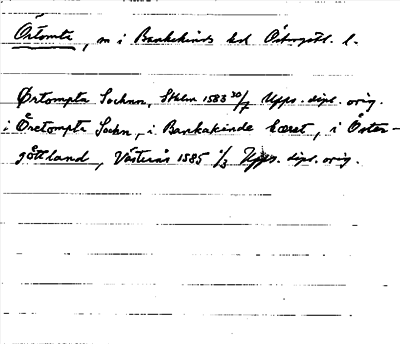 Örtomta, sn i Bankekinds hd Östergötl. l.
Örtompta Sochnn, Sthlm 1583 30/7 Upps. dipl. orig.
i Öretompta Sochn, i Bankakinde hæret, i Öster-
götland, Västerås 1585 1/3 Upps. dipl. orig.